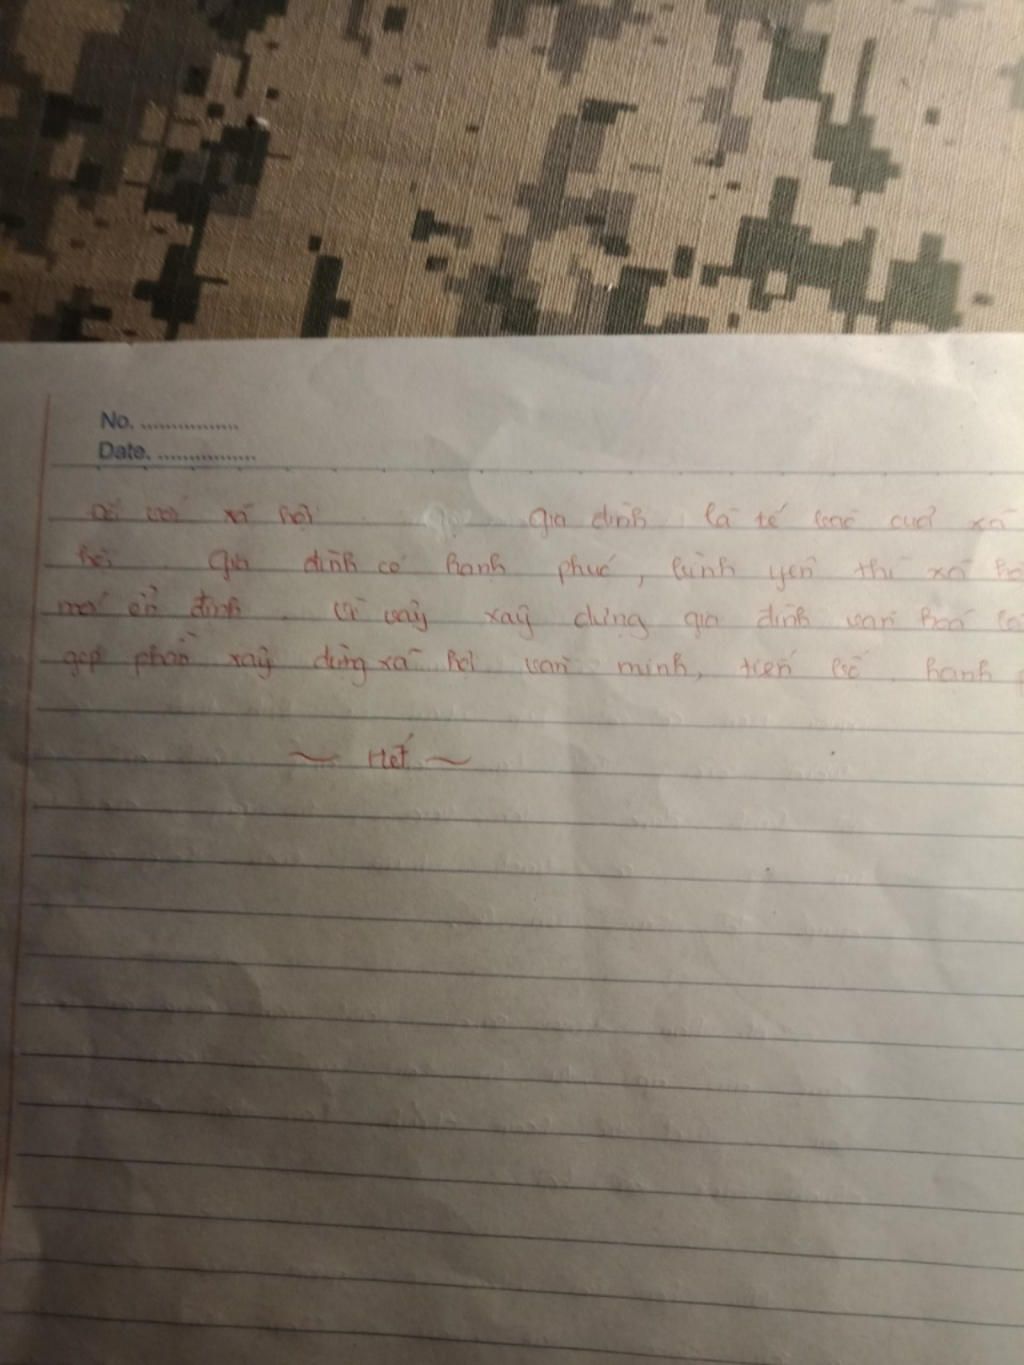 No. ................
Date. ................
Đối với xã hội gia đình là tế bào của xã
hội. Gia đình có hạnh phúc, bình yên thì xã hội
mới ổn định. Vì vậy xây dựng gia đình văn hoá là
góp phần xây dựng xã hội văn minh, tiến bộ, hạnh
~ Hết ~